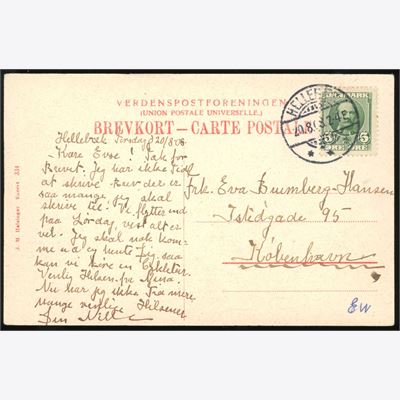 VERDENSPOSTFORENINGEN
(UNION POSTALE UNIVERSELLE.)
BREVKORT – CARTE POSTALE
DANMARK
5 5
ØRE ØRE
Hellebæk Torsdag 20/8 08
Kære Evse! Tak for
Brevet. Jeg har ikke Tid
at skrive. Kun der er
saa mange jeg skal
skrive til. Vi flytter ind
paa Lørdag, vest alt er
vel. Jeg skal nok kom-
me ud og hente Jer saa
kan vi køre en
Venlig Hilsen fra
Nu har jeg ikke Tra mere
mange venlige Hilsener
Din
Frk. Eva Bumberg-Hansen
Istedgade 95
København
EW